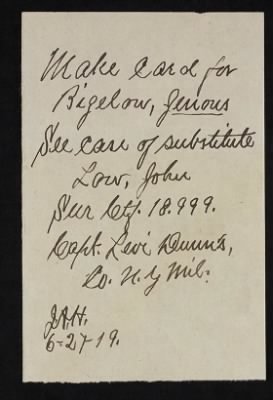 Make Card for
Bigelow, Jenous
See case of substitute
Low, John
Sur Ctf. 18.999.
Capt. Levi Dunn's,
Co. N.Y Mil.
6-27-19.